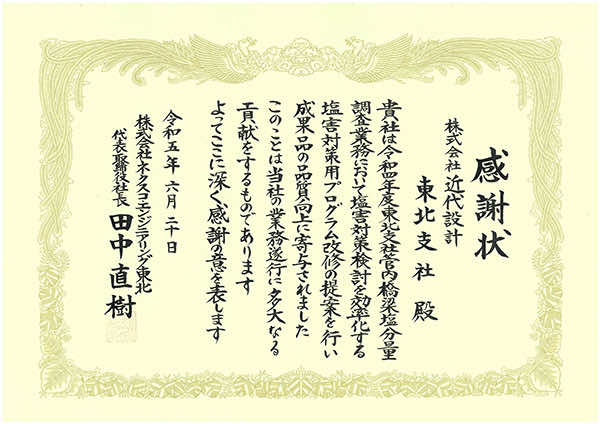 感謝状
株式会社 近代設計
東北支社 殿
貴社は令和四年度東北支社管内橋梁塩分量
調査業務において塩害対策検討を効率化する
塩害対策用プログラム改修の提案を行い
成果品の品質向上に寄与されました
このことは当社の業務遂行に多大なる
貢献をするものであります
よってここに深く感謝の意を表します
令和五年六月二十日
株式会社ネクスコ・エンジニアリング東北
代表取締役社長 田中直樹